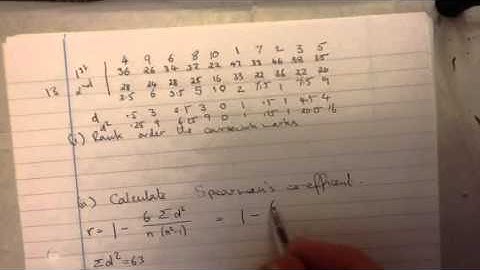 4 9 6 8 10 1 7 2 3 5
13 1st 36 26 34 32 22 47 33 46 38 35
2nd 28 24 28 25 16 33 22 36 22
3.5 6 3.5 5 10 2 7.5 1 7.5 9
d .5 3 2.5 3 0 1 .5 1 4.5 4
d² .25 9 6.25 9 0 1 .25 1 20.25 16
(i) Rank order the coursework marks
(ii) Calculate Spearman's coefficient.
r = 1 - 6 Σd² / n (n²-1) = 1 - 6
Σd² = 63